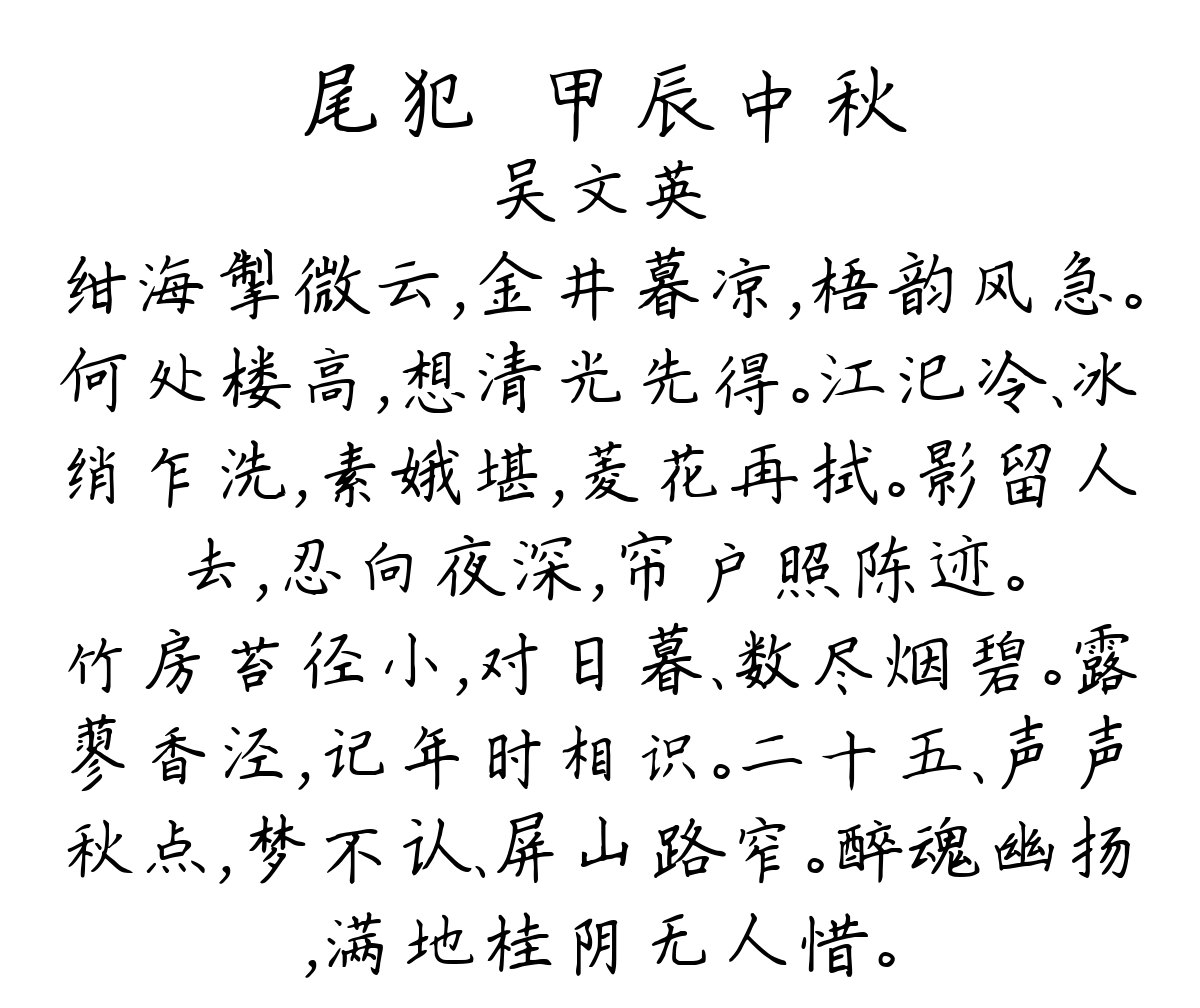 尾犯 甲辰中秋
吴文英
绀海掣微云,金井暮凉,梧韵风急。
何处楼高,想清光先得。江汜冷、冰
绡乍洗,素娥堪,菱花再拭。影留人
去,忍向夜深,帘户照陈迹。
竹房苔径小,对日暮、数尽烟碧。露
蓼香泾,记年时相识。二十五、声声
秋点,梦不认、屏山路窄。醉魂幽扬
,满地桂阴无人惜。